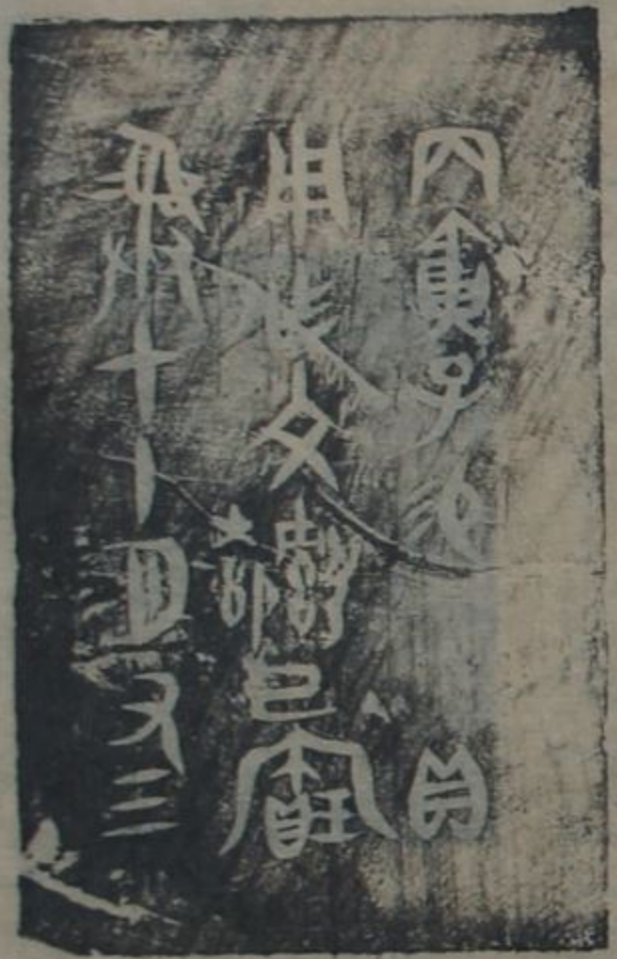 丙寅子易貝
用乍文己寶
彝才十月又三